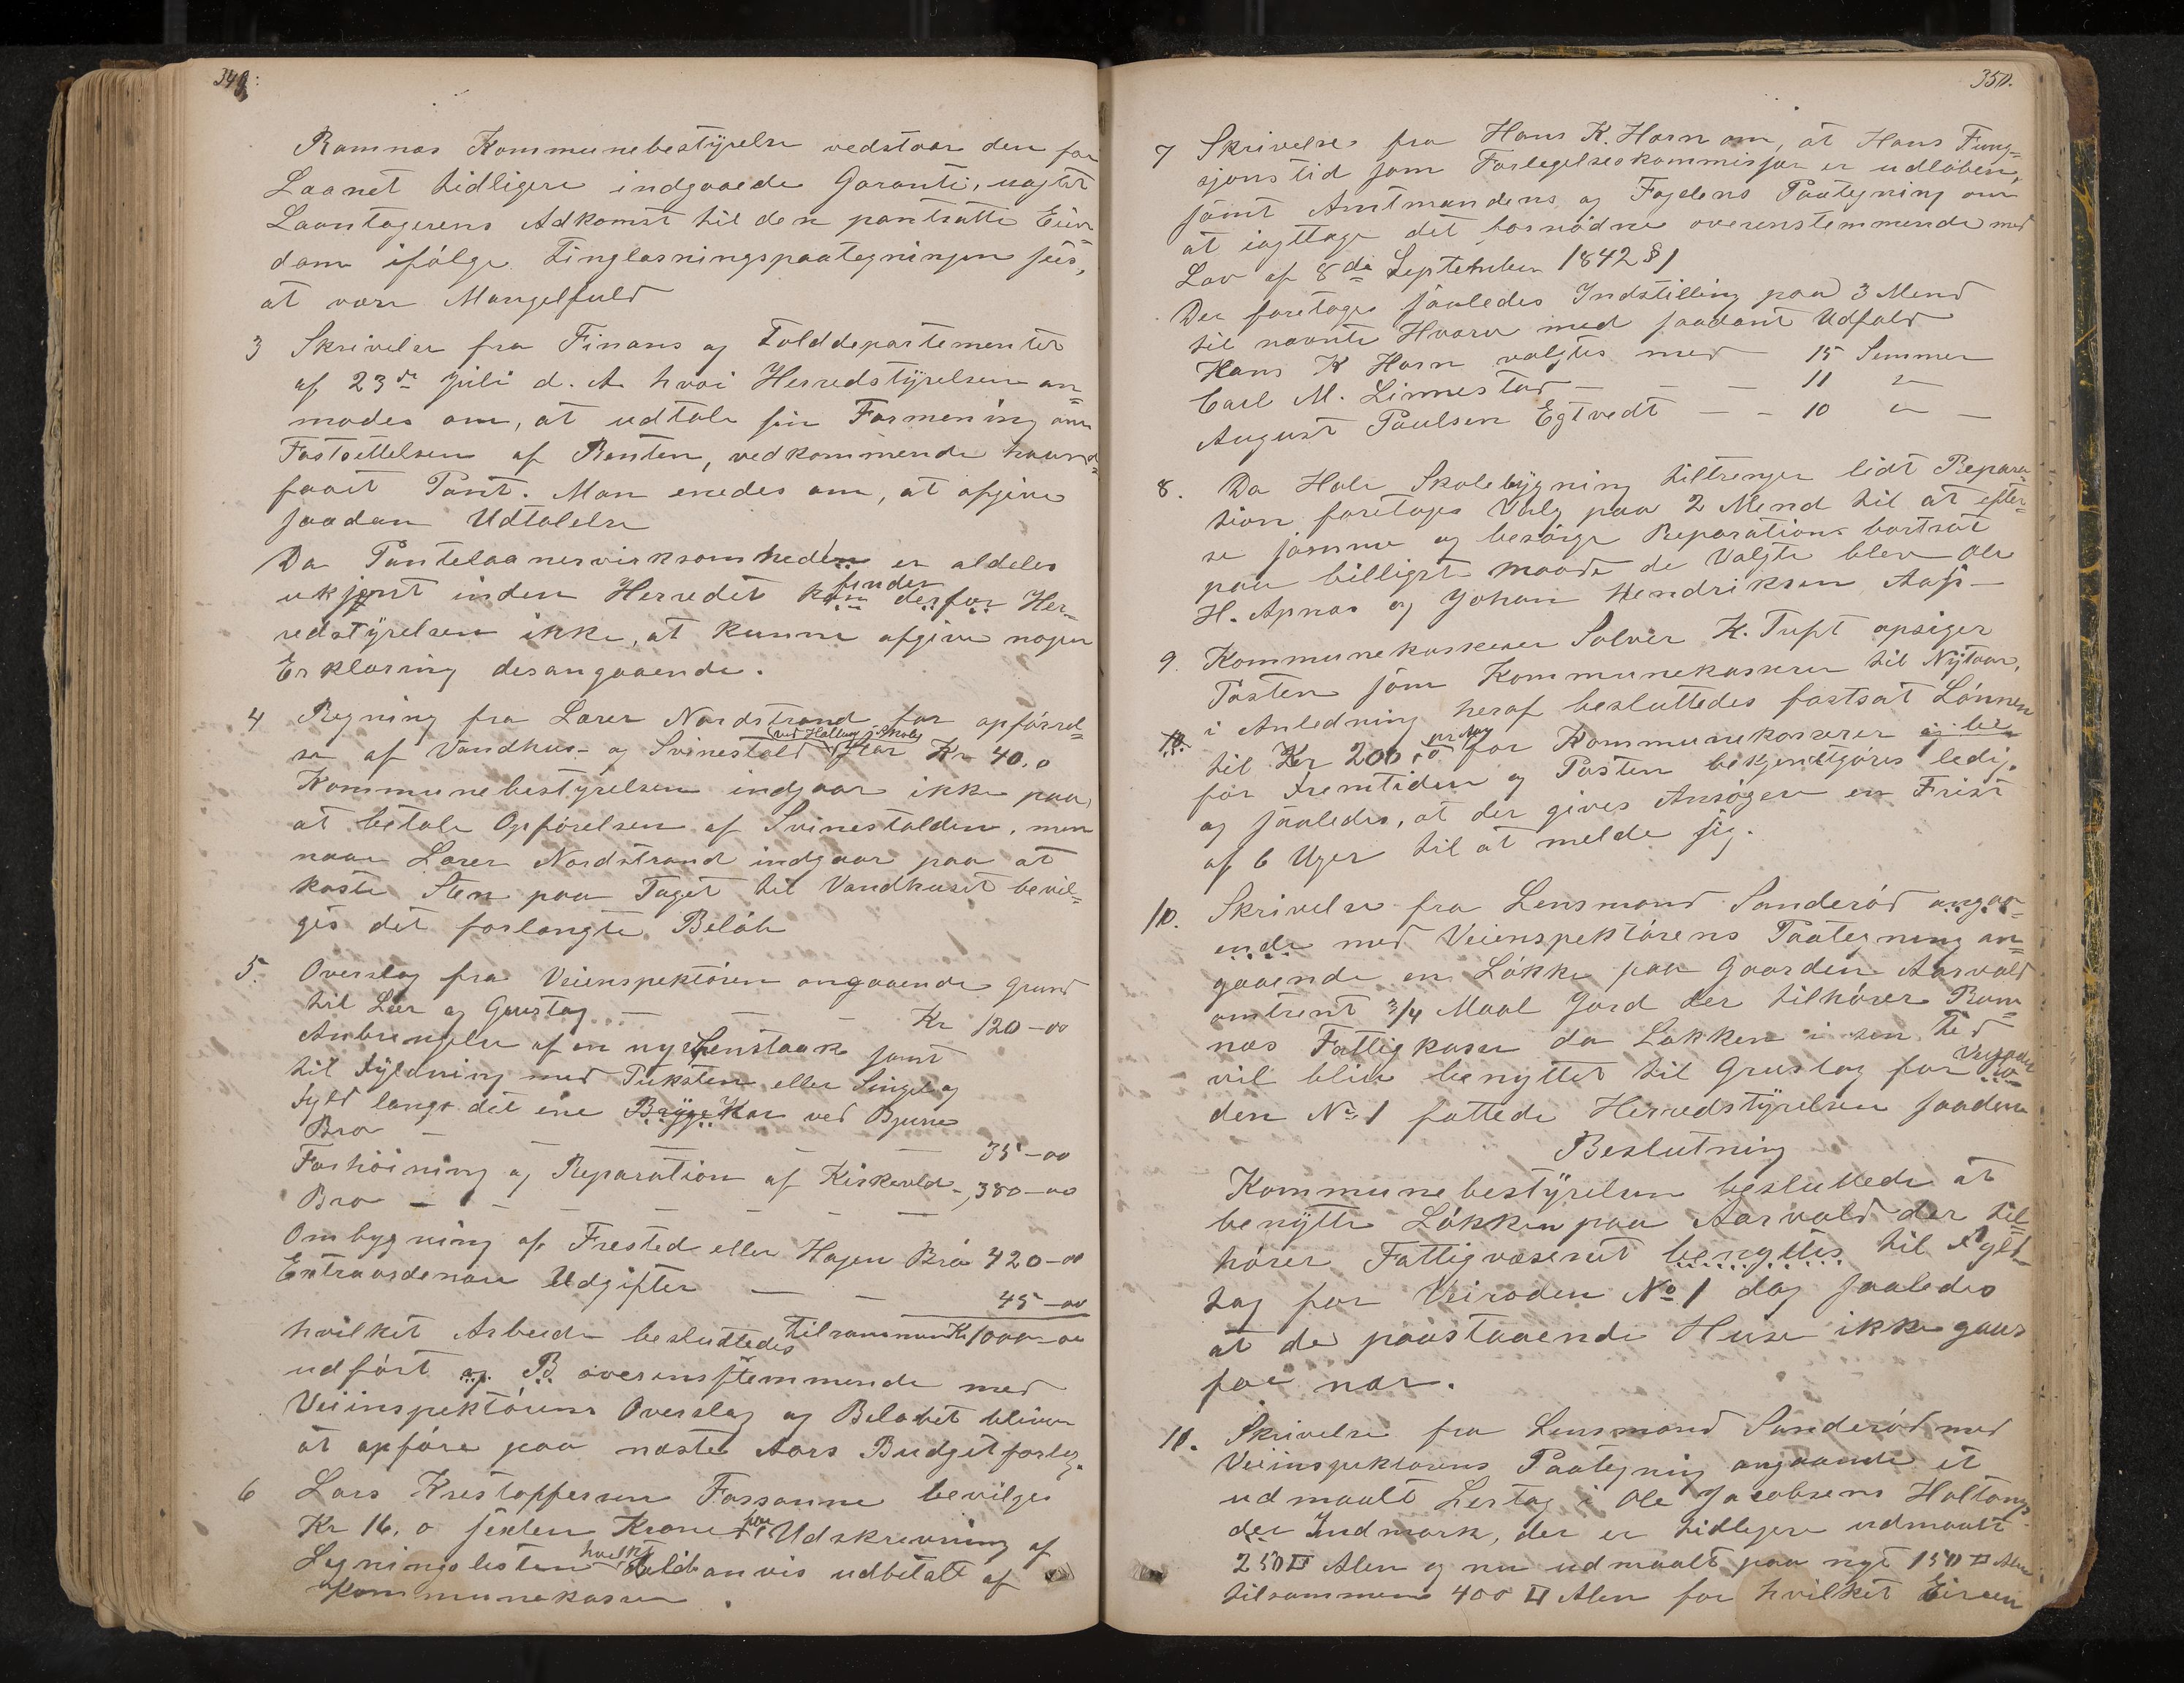 349.
Ramnæs Kommunebestyrelse vedstaar den for
Laanet tidligere indgaaede Garanti, uagtet
Laantagerens Adkomst til den pantsatte Eien=
dom ifølge Tinglæsningspaategningen sees,
at være Mangelfuld
3 Skrivelse fra Finans og Tolddepartementet
af 23de Juli d. A. hvori Herredstyrelsen an=
modes om, at udtale sin Formening om
Fastsettelsen af Renten, vedkommende haand=
faaet Pant. Man enedes om, at afgive
saadan Udtalelse
Da Pantelaanervirksomheden er aldeles
ukjent inden Herredet kan finder derfor Her=
redstyrelsen ikke, at kunne afgive nogen
Erklæring desangaaende.
4 Regning fra Lærer Nordstrand for opførsel=
se af Vandhus- og Svinestald ved Hallung Skole stor Kr 40,0
Kommunebestyrelsen indgaar ikke paa,
at betale Opførelsen af Svinestalden, men
naar Lærer Nordstrand indgaar paa at
koste Sten paa Taget til Vandhuset bevil=
ges det forlangte Beløb
5. Overslag fra Veiinspektøren angaaende grund
til Leer og Grustag — — — Kr 120-00
Anbringelse af en ny Stenstaak samt
til Fyldning med Puksten eller Singel og
Fyld langs det ene Brygge Kar ved Bjune
Bro — — — — 35-00
Forhøining og Reparation af Kirkevold-
Bro — — — — — — , 380-00
Ombygning af Frested eller Hagen Bro 420-00
Extraordenære Udgifter — — 45-00
hvilket Arbeide besluttedes tilsammen Kr 1000-00
udført af B overensstemmende med
Veiinspektørens Overslag og Beløbet bliver
at opføre paa næste Aars Budgetforlag.
6 Lars Kristoffersen Fossanne bevilges
Kr 16,0 sexten Kroner for Udskrivning af
Ligningslisten hvilket Beløb anvis udbetalt af
Kommunekassen.
350.
7 Skrivelse fra Hans K. Horn om, at Hans Fung=
sjonstid som Forlegelseskommissær er udløben,
samt Amtmandens og Fogdens Paategning om
at iagttage det fornødne overenstemmende med
Lov af 8de September 1842 § 1
Der foretages saaledes Indstilling paa 3 Mend
til nævnte Hverv med saadant Udfald
Hans K Horn valgtes med 15 Stemmer
Carl M. Linnestad — — — 11 "
August Paulsen Egtvedt — — 10 " —
8. Da Hole Skolebygning tiltrenger lidt Repara
tion foretages Valg paa 2 Mend til at efter=
se samme og besørge Reparations bortsat
paa billigst maade de Valgte blev Ole
H. Apnæs og Johan Hendriksen Aass-
9. Kommunekasserer Solver K. Tuft opsiger
Posten som Kommunekasserer til Nytaar,
i Anledning heraf besluttedes fastsat Lønnen
til Kr 200,0 pr Aar for Kommunekasserer
for Fremtiden og Posten bekjentgjøres ledig,
og saaledes, at der gives Ansøgere en Frist
af 6 Uger til at melde sig.
10. Skrivelse fra Lensmand Sanderød angaa=
ende med Veiinspektørens Paategning an=
gaaende en Løkke paa Gaarden Aarvold
omtrent 3/4 Maal Jord der tilhører Ram=
næs Fattigkasse da Løkken i sen tid
vil blive benyttet til Grustag for Veiro=
den No 1 fattede Herredstyrelsen saadan
Beslutning
Kommunebestyrelsen besluttede at
benytte Løkken paa Aarvold der til=
hører Fattigvæsenet benyttes til Fyld
tag for Veiroden No 1 dog saaledes
at de paastaaende Huse ikke gaaes
for nær.
11. Skrivelse fra Lensmand Sanderød med
Veiinspektørens Paategning angaaende et
udmaalt Lertag i Ole Jacobsens Holtang
der Indmark, der er tidligere udmaalt
250 □ Alen og nu udmaalt paa nyt 150 □ Alen
tilsammen 400 □ Alen for hvilket Eieren